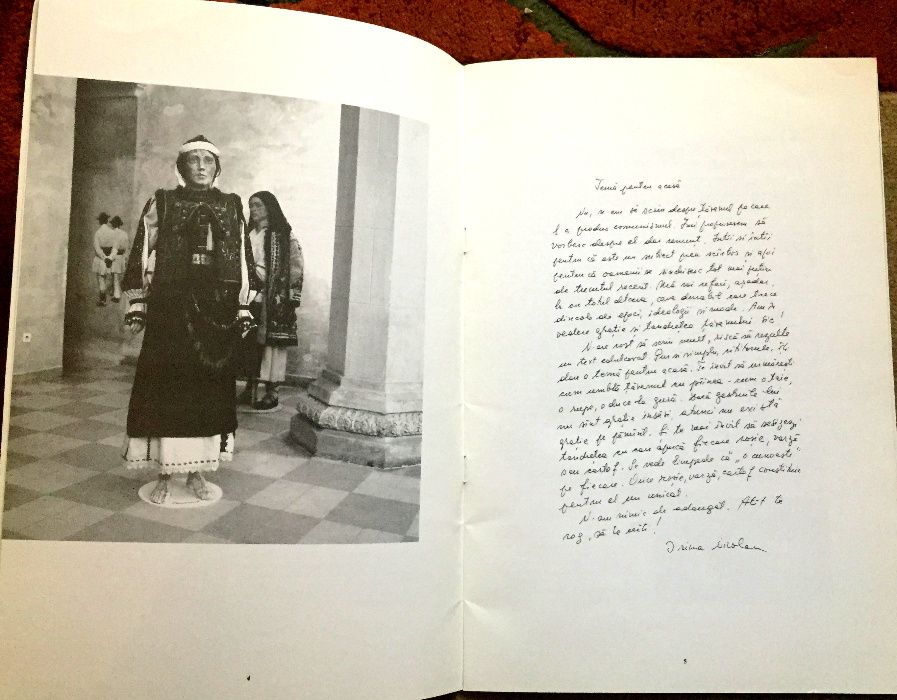 4
Temă pentru acasă
Nu, n-am să scriu despre țăranul pe care
l-a produs comunismul. Îmi propusesem să
vorbesc despre el dar renunț. Întîi și întîi
pentru că este un subiect prea scîrbos și apoi
pentru că oamenii se sinchisesc tot mai puțin
de trecutul recent. Mă voi referi, așadar,
la cu totul altceva, care durabil sau trece
dincolo de epoci, ideologii și mode. Am în
vedere grația și tandrețea țăranului sic!
N-are rost să scriu mult, riscă să rezulte
un text edulcorat. Pur și simplu, cititorule, îți
dau o temă pentru acasă. Te invit să urmărești
cum umblă țăranul cu pîinea - cum o taie,
o rupe, o duce la gură. Dacă gesturile lui
nu sînt grația însăși atunci nu există
grație pe pămînt. Și te mai invit să sesizezi
tandrețea cu care apucă fiecare roșie, varză
sau cartof. Se vede limpede că „o cunoaște"
pe fiecare. Orice roșie, varză, cartof constituie
pentru el un unicat.
N-am nimic de adăugat. Atît te
rog, să te uiți!
Irina Nicolau
5